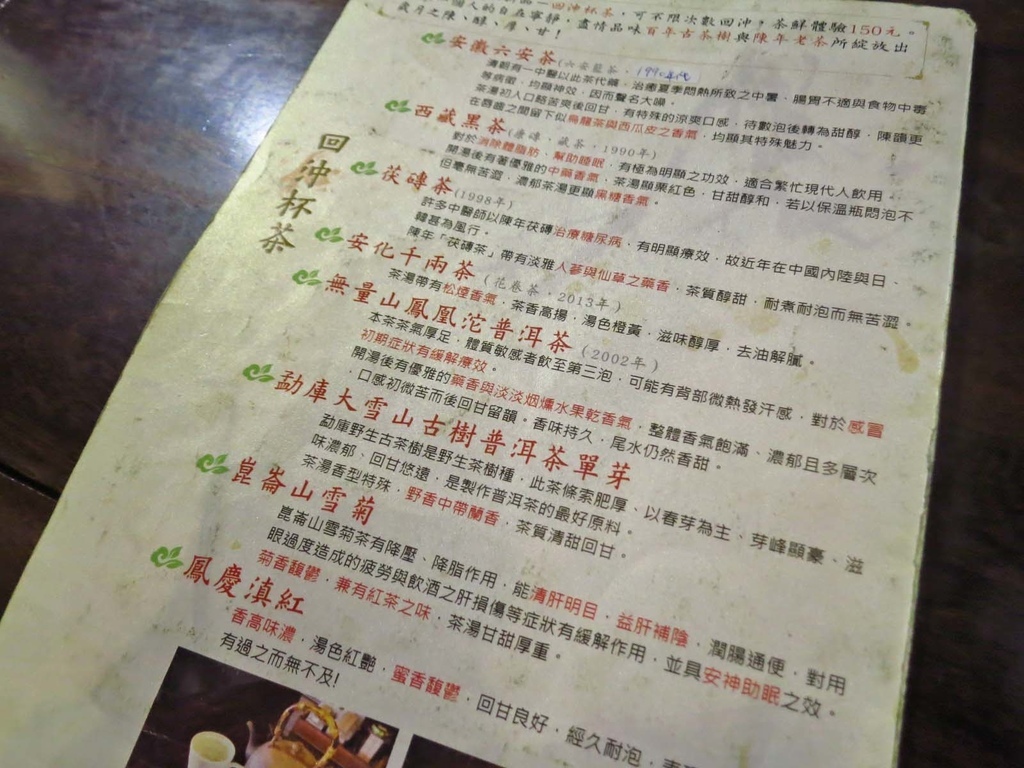 個人的自在寧靜，盡情品味百年古茶樹與陳年老茶所綻放出
回沖杯茶，可不限次數回沖？茶鮮體驗150元。
歲月之陳、醇、厚、甘！
回沖杯茶
安徽六安茶(六安籃茶，1990年代
清朝有一中醫以此茶代藥，治癒夏季悶熱所致之中暑、腸胃不適與食物中毒
等病徵，均顯神效，因而聲名大噪。
茶湯初入口略苦爽後回甘，有特殊的涼爽口感，待數泡後轉為甜醇，陳韻更
在唇齒之間留下似烏龍茶與西瓜皮之香氣，均顯其特殊魅力。
西藏黑茶(康磚，藏茶，1990年)
對於消除體脂肪、幫助睡眠，有極為明顯之功效，適合繁忙現代人飲用，
開湯後有著優雅的中藥香氣，茶湯顯栗紅色，甘甜醇和，若以保溫瓶悶泡不
但毫無苦澀，濃郁茶湯更顯黑糖香氣。
茯磚茶(1998年)
許多中醫師以陳年茯磚治療糖尿病，有明顯療效，故近年在中國內陸與日、
韓甚為風行。
陳年「茯磚茶」帶有淡雅人蔘與仙草之藥香，茶質醇甜，耐煮耐泡而無苦澀。
安化千兩茶(花卷茶，2013年)
茶湯帶有松煙香氣，茶香高揚，湯色橙黃，滋味醇厚，去油解膩。
無量山鳳凰沱普洱茶(2002年)
本茶茶氣厚足，體質敏感者飲至第三泡，可能有背部微熱發汗感，對於感冒
初期症狀有緩解療效。
開湯後有優雅的藥香與淡淡烟燻水果乾香氣，整體香氣飽滿、濃郁且多層次
，口感初微苦而後回甘留韻。香味持久，尾水仍然香甜。
勐庫大雪山古樹普洱茶單芽
勐庫野生古茶樹是野生茶樹種，此茶條索肥厚、以春芽為主、芽峰顯豪、滋
味濃郁、回甘悠遠，是製作普洱茶的最好原料。
茶湯香型特殊，野香中帶蘭香，茶質清甜回甘。
崑崙山雪菊
崑崙山雪菊茶有降壓、降脂作用，能清肝明目，益肝補陰，潤腸通便，對用
眼過度造成的疲勞與飲酒之肝損傷等症狀有緩解作用，並具安神助眠之效。
菊香馥鬱，兼有紅茶之味，茶湯甘甜厚重。
鳳慶滇紅
香高味濃，湯色紅艷，蜜香馥鬱，回甘良好，經久耐泡，
有過之而無不及！